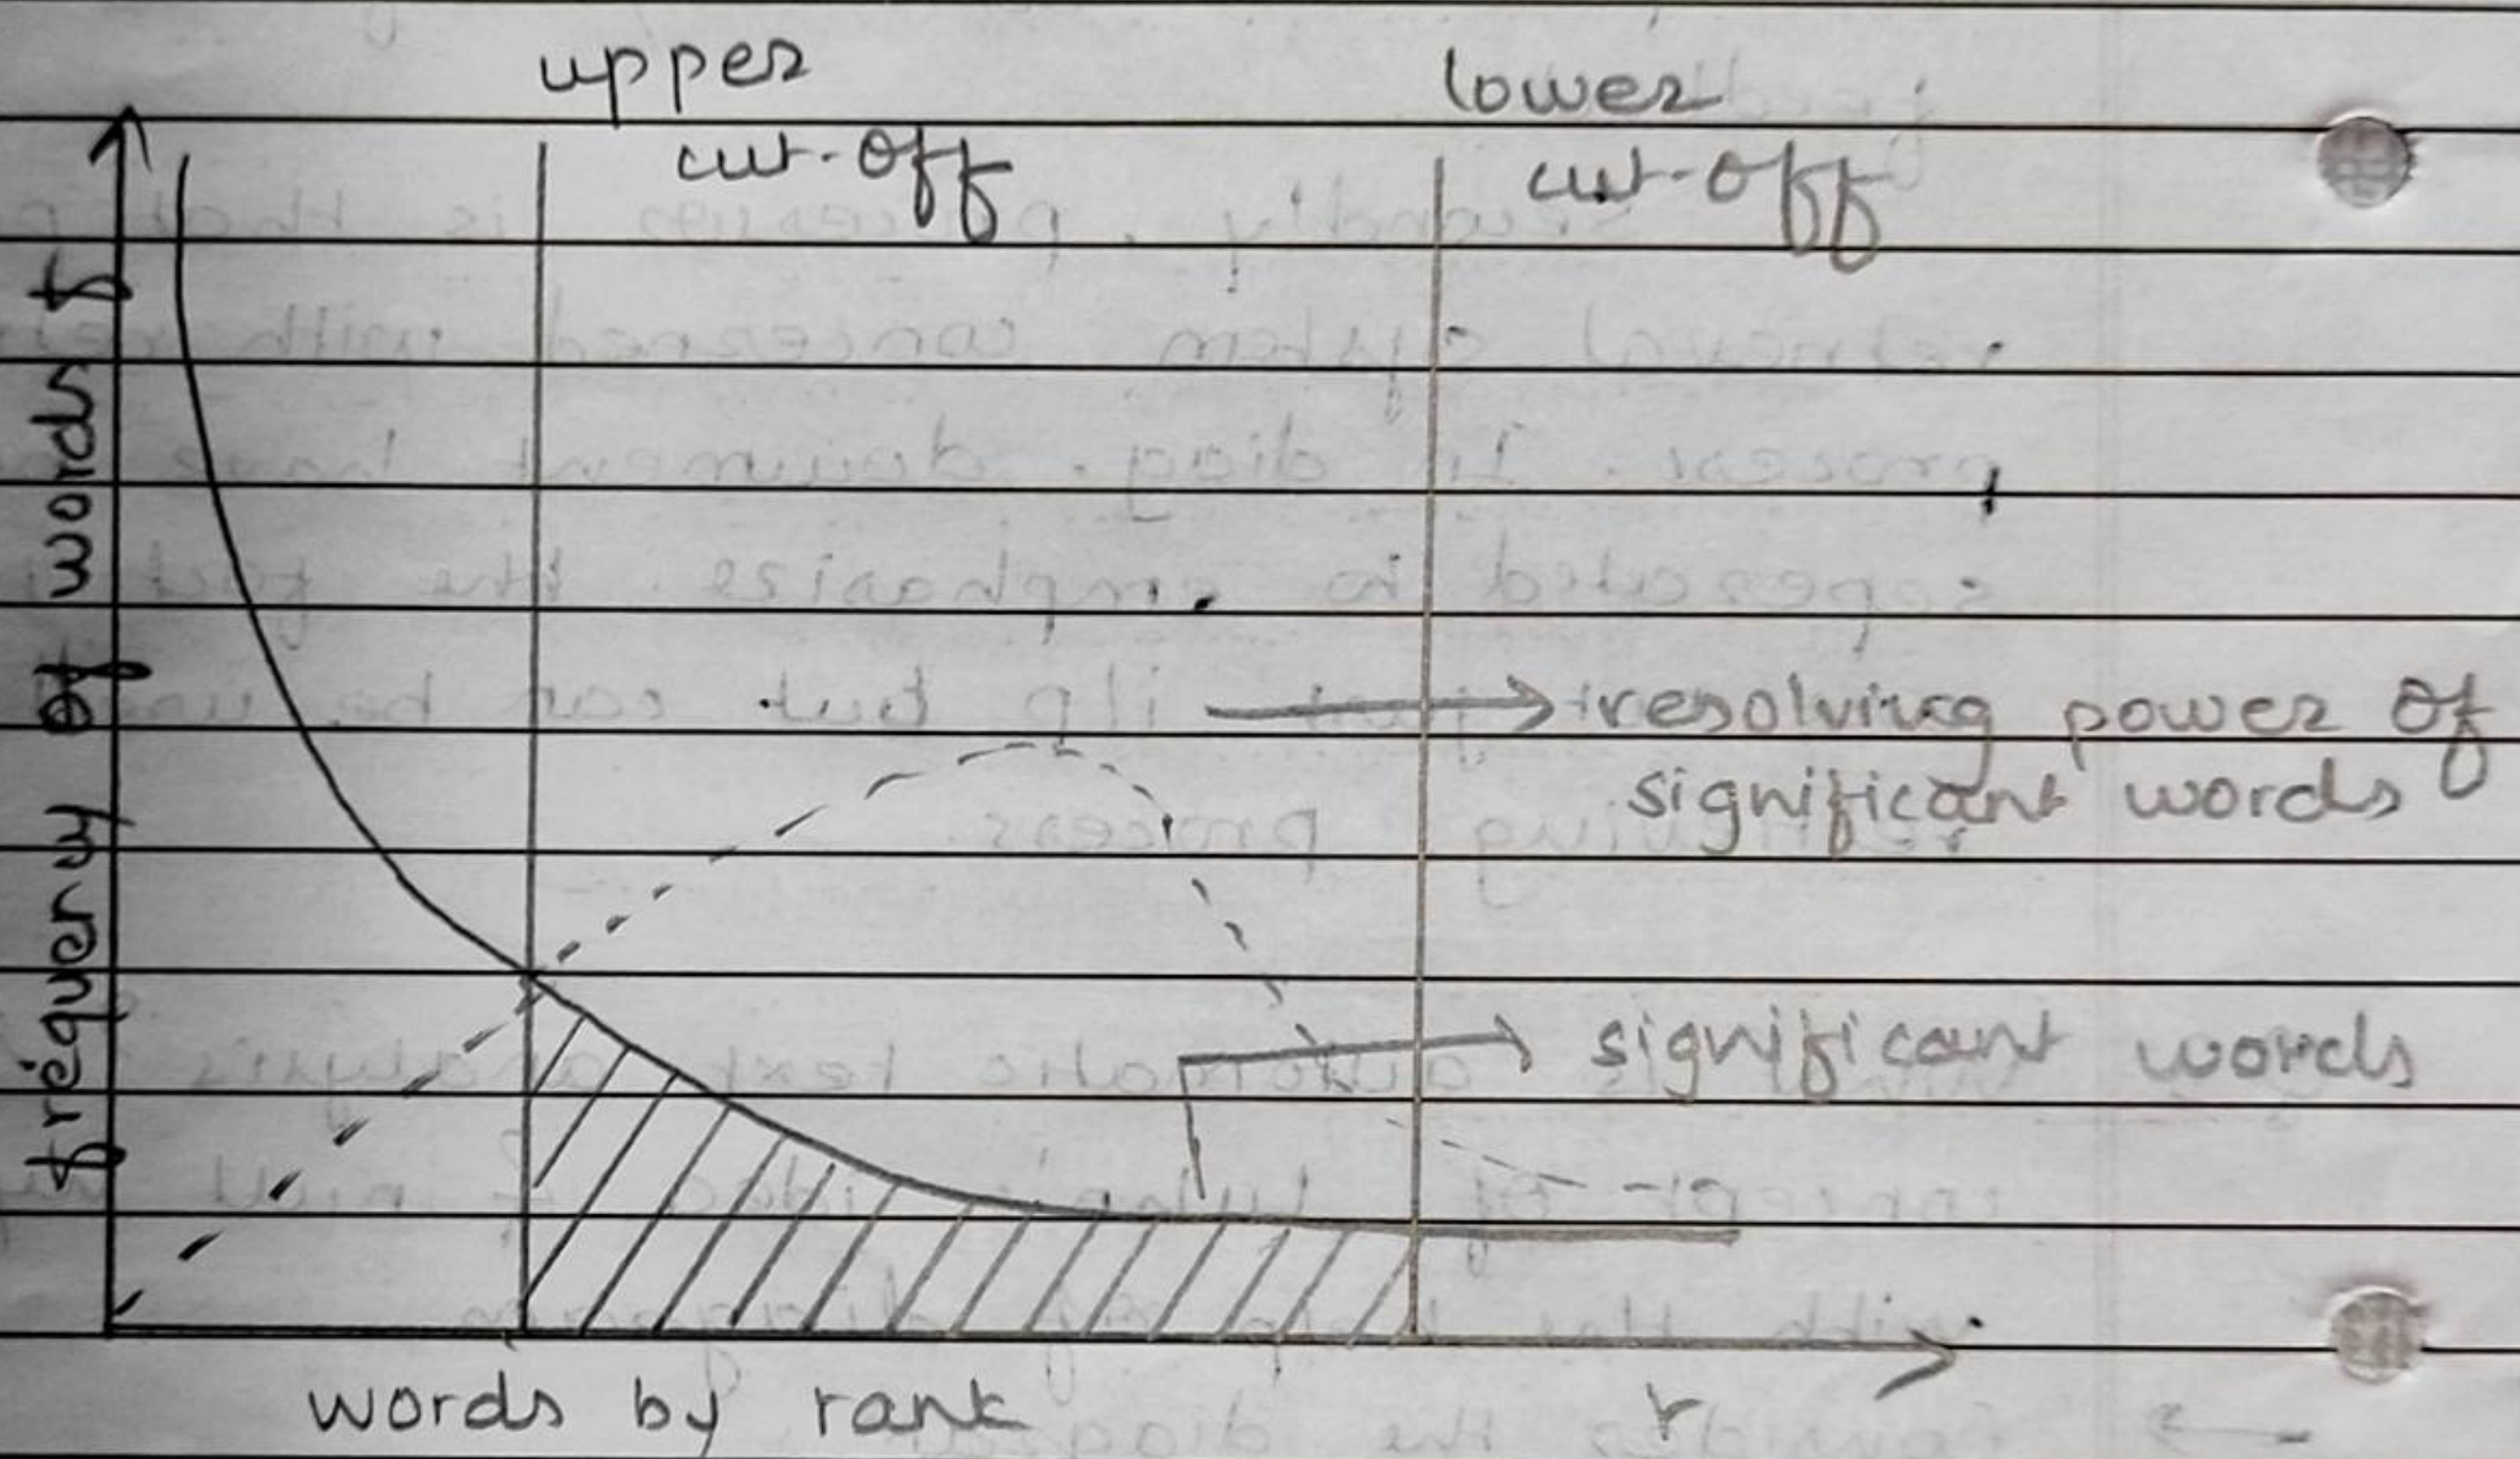 upper
cut-off
lower
cut-off
frequency of words f
resolving power of
significant words
significant words
words by rank
r